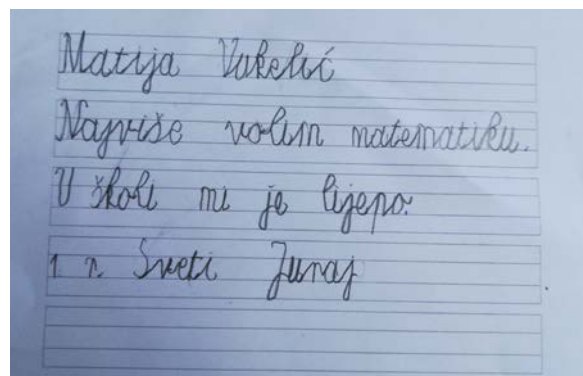 Matija Vukelić
Najviše volim matematiku.
U školi mi je lijepo.
1. r. Sveti Juraj